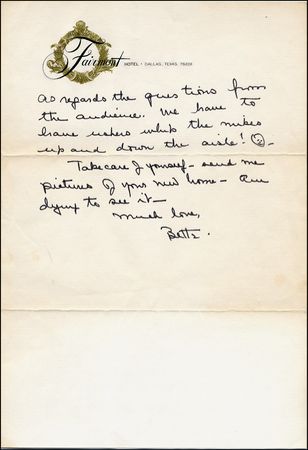 Fairmont
HOTEL • DALLAS, TEXAS, 75201
as regards the questions from
the audience. We have to
have ushers whip the mikes
up and down the aisle!
Take care of yourself - send me
pictures of your new home - Am
dying to see it -
Much love,
Bette.